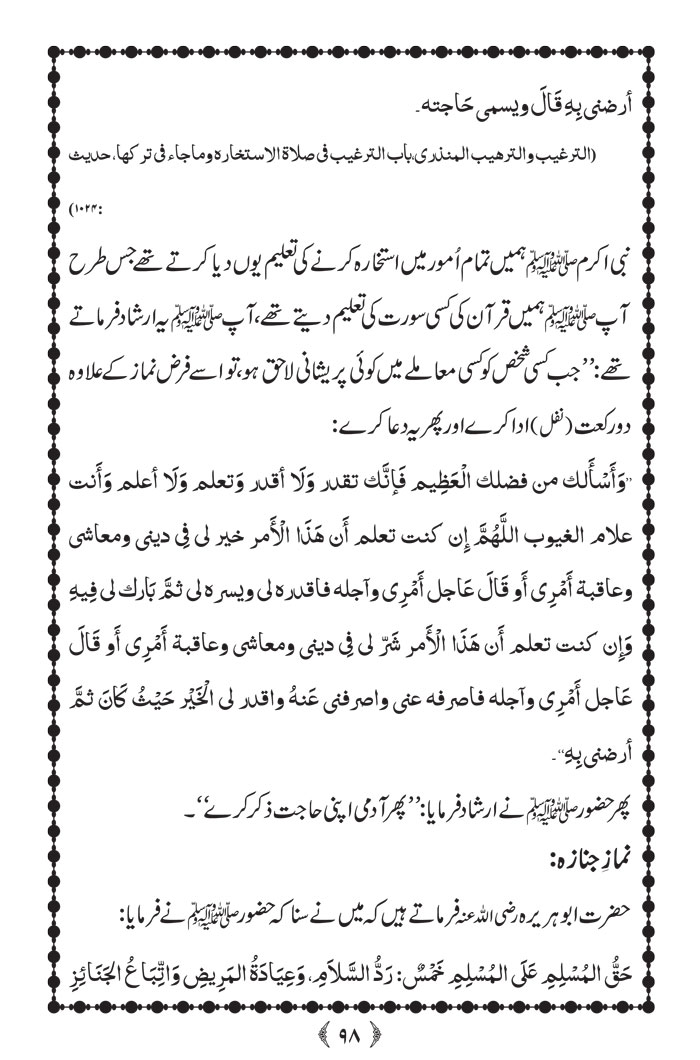 أرضنی بِهِ قَالَ ويسمی حَاجته۔
(الترغيب والترهيب المنذری،باب الترغيب فی صلاة الاستخاره وماجاء فی ترکها، حدیث
:۱۰۲۴)
نبی اکرم ﷺ ہمیں تمام اُمور میں استخارہ کرنے کی تعلیم یوں دیا کرتے تھے جس طرح
آپ ﷺ ہمیں قرآن کی کسی سورت کی تعلیم دیتے تھے، آپ ﷺ یہ ارشاد فرماتے
تھے: ’’جب کسی شخص کو کسی معاملے میں کوئی پریشانی لاحق ہو،تو اسے فرض نماز کے علاوہ
دو رکعت (نفل) ادا کرے اور پھر یہ دعا کرے:
”وَأَسْأَلك من فضلك الْعَظِيم فَإِنَّك تقدر وَلَا أقدر وَتعلم وَلَا أعلم وَأَنت
علام الغيوب اللَّهُمَّ إِن كنت تعلم أَن هَذَا الْأَمر خير لی فِی دينی ومعاشی
وعاقبة أَمْرِی أَو قَالَ عَاجل أَمْرِی وآجله فاقدره لی ويسره لی ثمَّ بَارك لی فِيهِ
وَإِن كنت تعلم أَن هَذَا الْأَمر شَرّ لی فِی دينی ومعاشی وعاقبة أَمْرِی أَو قَالَ
عَاجل أَمْرِی وآجله فاصرفه عنی واصرفنی عَنهُ واقدر لی الْخَيْر حَيْثُ كَانَ ثمَّ
أرضنی بِهِ“۔
پھر حضور ﷺ نے ارشاد فرمایا: ’’پھر آدمی اپنی حاجت ذکر کرے‘‘۔
نمازِ جنازہ:
حضرت ابو ہریرہ رضی اللہ عنہ فرماتے ہیں کہ میں نے سنا کہ حضور ﷺ نے فرمایا:
حَقُّ المُسْلِمِ عَلَى المُسْلِمِ خَمْسٌ: رَدُّ السَّلاَمِ، وَعِيَادَةُ المَرِيضِ وَاتِّبَاعُ الجَنَائِزِ
﴿۹۸﴾